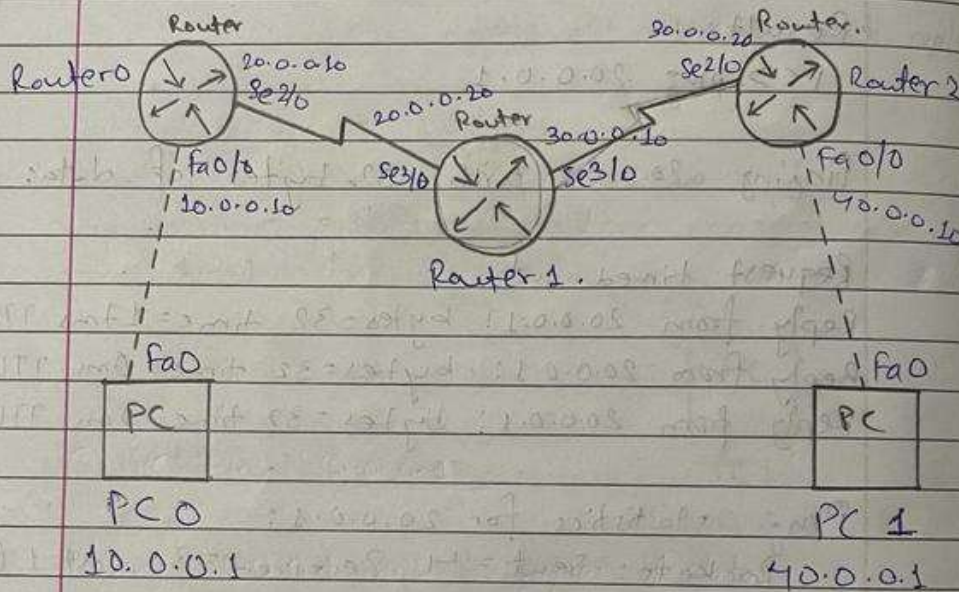 Router
Router0
20.0.0.10
Se2/0
Fa0/0
10.0.0.10
20.0.0.20
Router
Se3/0
30.0.0.10
Se3/0
Router 1.
30.0.0.20
Router.
Se2/0
Fa0/0
40.0.0.10
Fa0
PC
PC 0
10.0.0.1
Fa0
PC
PC 1
40.0.0.1